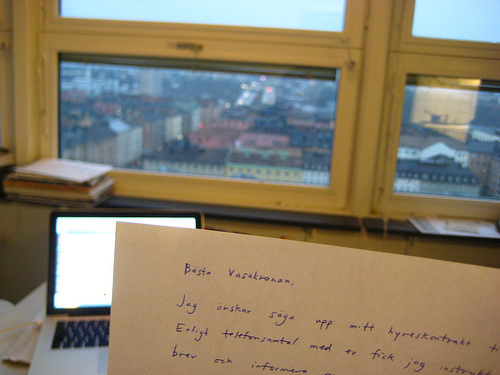 Bästa Vasakronan,
Jag önskar säga upp mitt hyreskontrakt
Enligt telefonsamtal med er fick jag
brev och informera